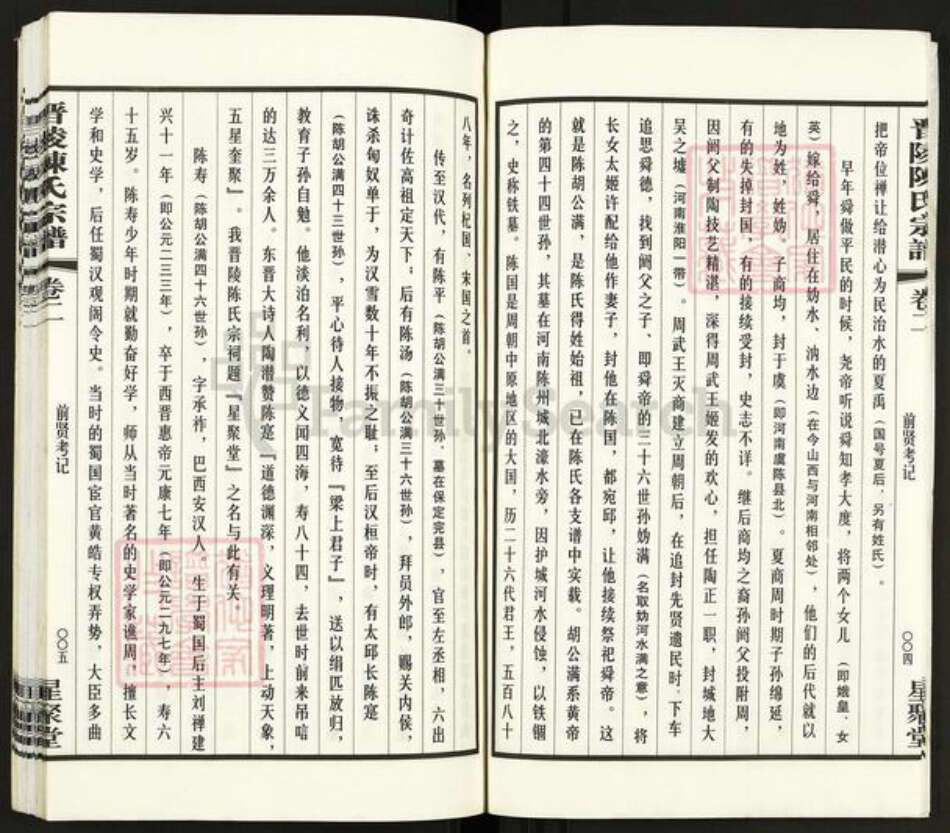 晋陵陈氏宗谱 卷二
前贤考记
〇〇四
星聚堂
把帝位禅让给潜心为民治水的夏禹（国号夏后，另有姓氏）。
早年舜做平民的时候，尧帝听说舜知孝大度，将两个女儿（即娥皇、女
英）嫁给舜，居住在妫水、汭水边（在今山西与河南相邻处），他们的后代就以
地为姓，姓妫 子商均，封于虞（即河南虞陈县北）。夏商周时期子孙绵延，
有的失掉封国，有的接续受封，史志不详。继后商均之裔孙阏父投附周，
因阏父制陶技艺精湛，深得周武王姬发的欢心，担任陶正一职，封城地大
吴之墟（河南淮阳一带）。周武王灭商建立周朝后，在追封先贤遗民时，下车
追思舜德，找到阏父之子、即舜帝的三十六世孙妫满（名取妫河水满之意），将
长女太姬许配给他作妻子，封他在陈国，都宛邱，让他接续祭祀舜帝。这
就是陈胡公满，是陈氏得姓始祖，已在陈氏各支谱中实载。胡公满系黄帝
的第四十四世孙，其墓在河南陈州城北濠水旁，因护城河水侵蚀，以铁锢
之，史称铁墓。陈国是周朝中原地区的大国，历二十六代君王，五百八十
八年，名列杞国、宋国之首。
传至汉代，有陈平（陈胡公满三十世孙，墓在保定完县），官至左丞相，六出
奇计佐高祖定天下；后有陈汤（陈胡公满三十六世孙），拜员外郎，赐关内侯，
诛杀匈奴单于，为汉雪数十年不振之耻；至后汉桓帝时，有太邱长陈寔
（陈胡公满四十三世孙），平心待人接物，宽待『梁上君子』，送以绢匹放归，
教育子孙自勉。他淡泊名利，以德义闻四海，寿八十四，去世时前来吊唁
的达三万余人。东晋大诗人陶潜赞陈寔『道德渊深，义理明著，上动天象，
五星奎聚』。我晋陵陈氏宗祠题『星聚堂』之名与此有关。
陈寿（陈胡公满四十六世孙），字承祚，巴西安汉人。生于蜀国后主刘禅建
兴十一年（即公元二三三年），卒于西晋惠帝元康七年（即公元二九七年），寿六
十五岁。陈寿少年时期就勤奋好学，师从当时著名的史学家谯周，擅长文
学和史学，后任蜀汉观阁令史。当时的蜀国宦官黄皓专权弄势，大臣多曲
晋陵陈氏宗谱 卷二
前贤考记
〇〇五
星聚堂
FamilySearch